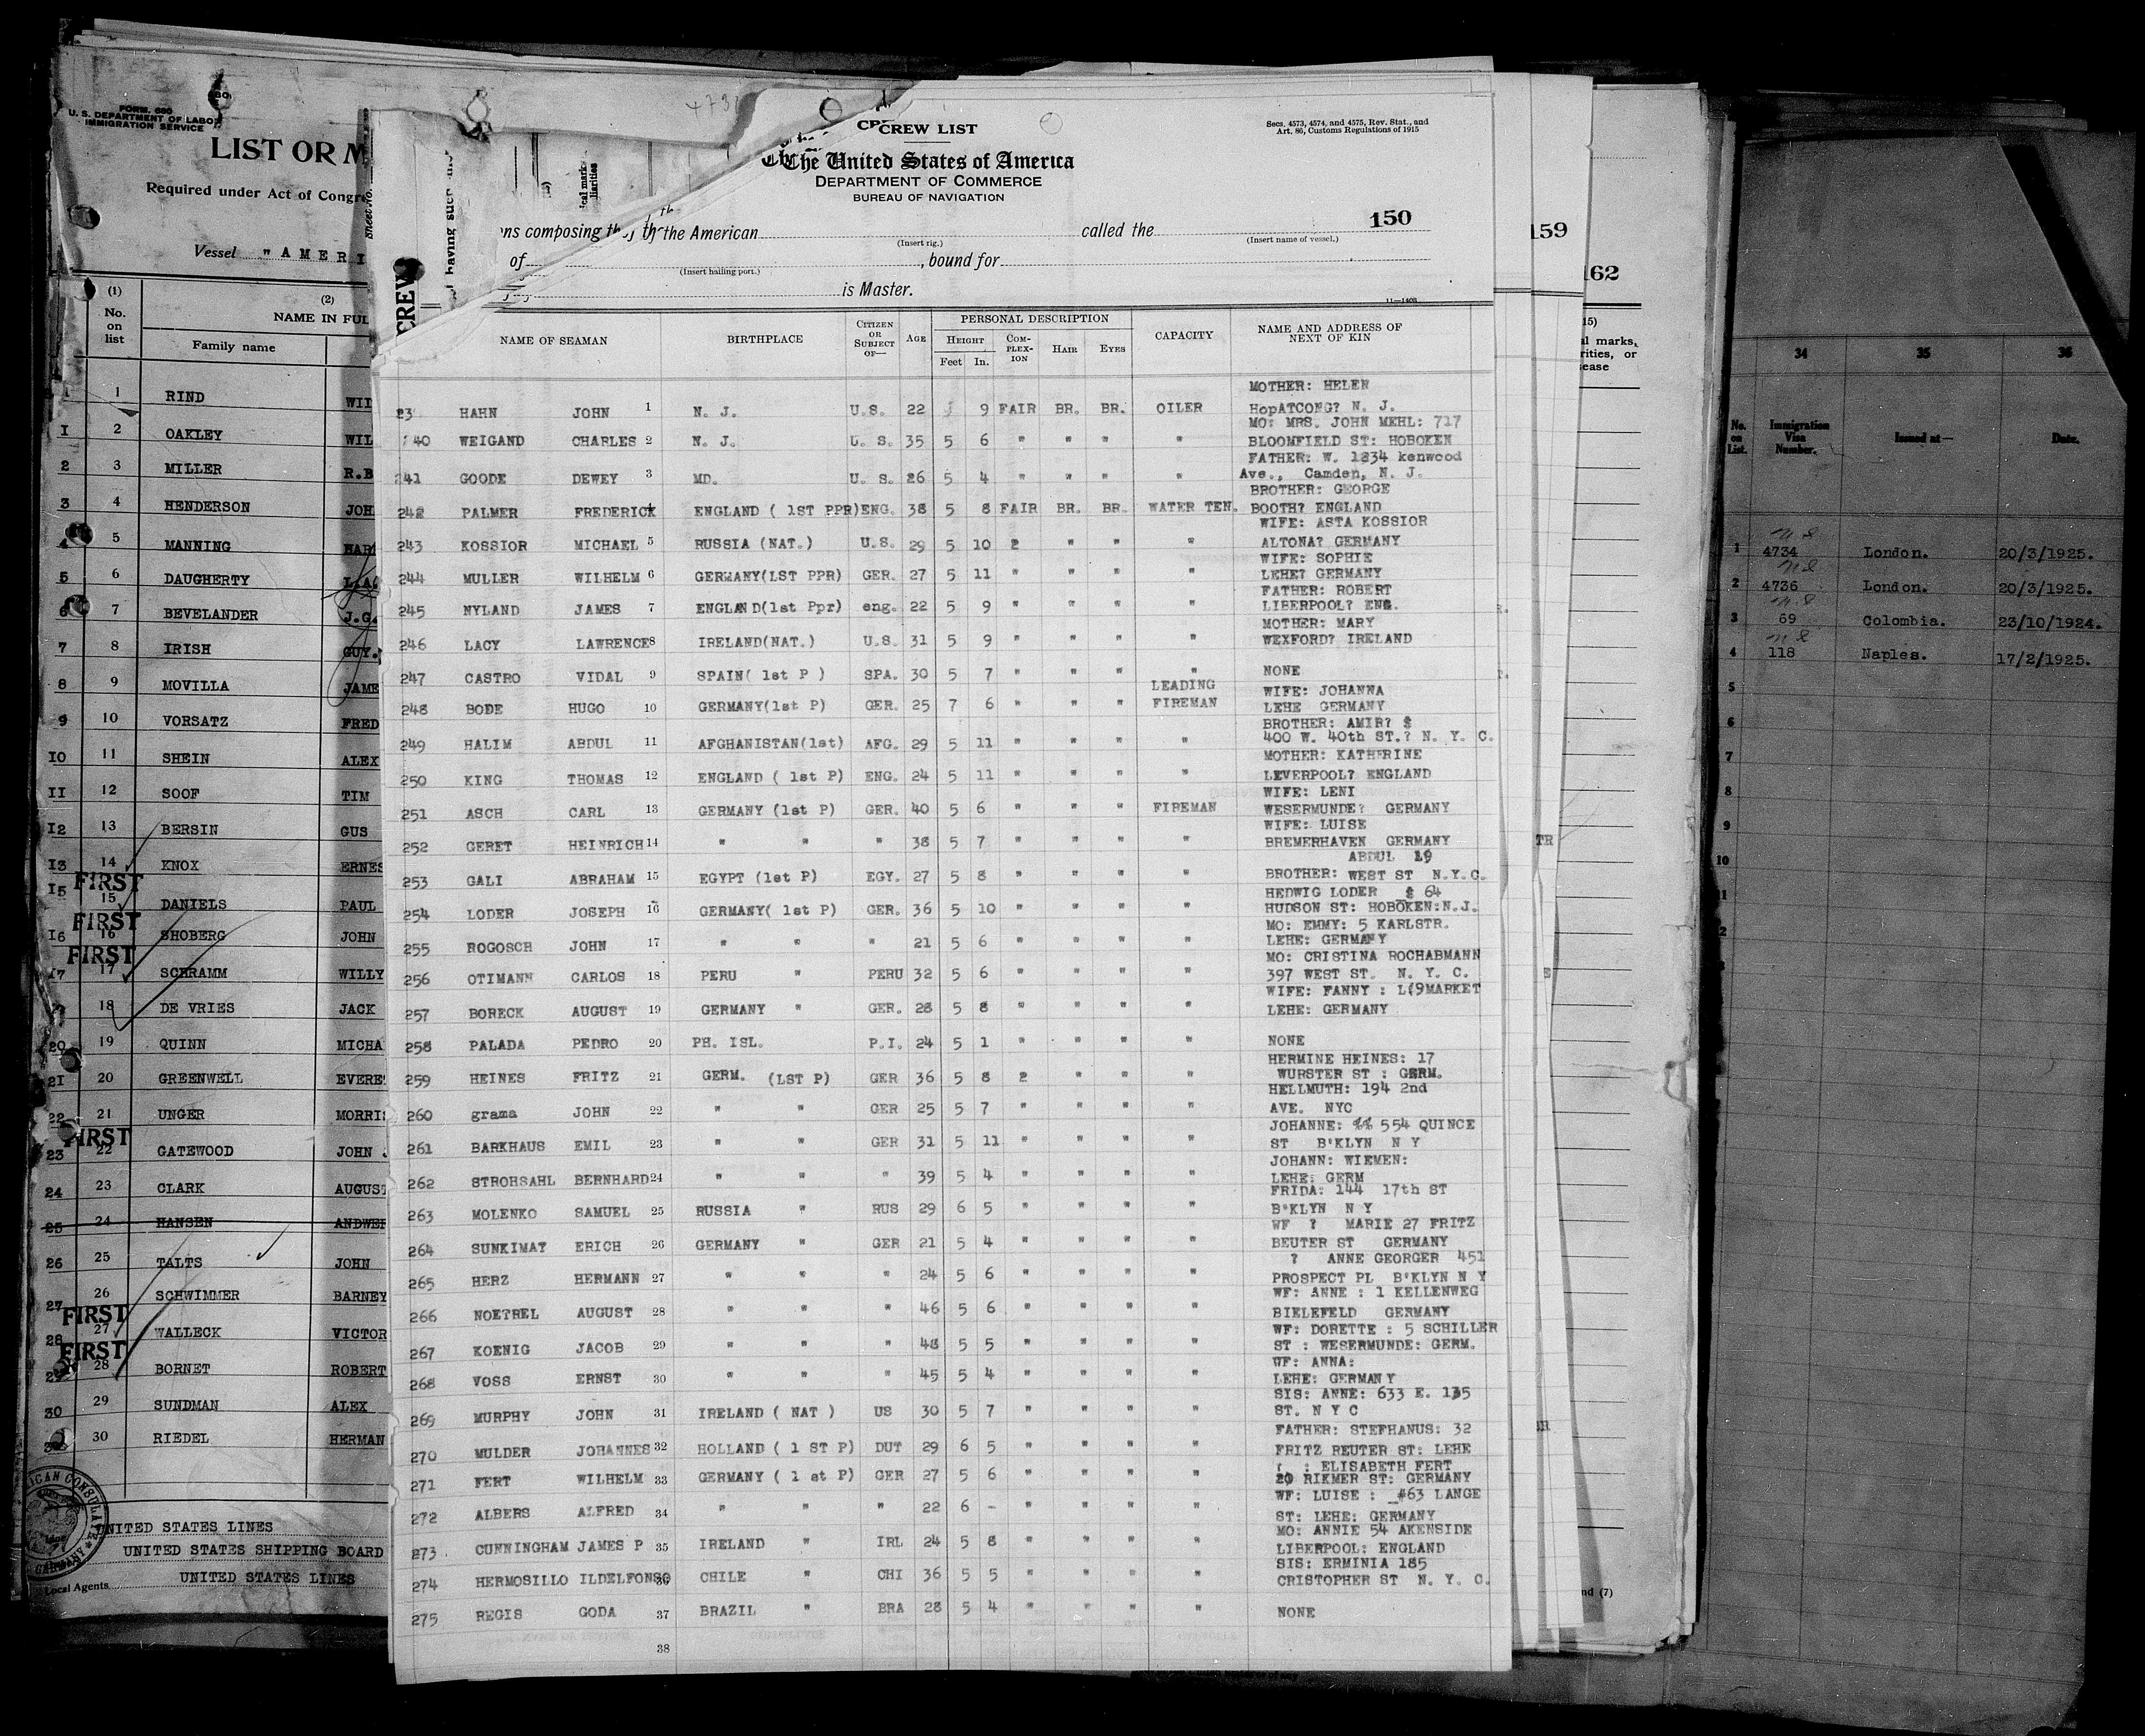 FORM 680
U. S. DEPARTMENT OF LABOR
IMMIGRATION SERVICE
LIST OR M
Required under Act of Congre
Vessel "AMERI
(1) (2)
No. on list NAME IN FUL
Family name
1 1 RIND WIL
I 2 OAKLEY WIL
2 3 MILLER R.B
3 4 HENDERSON JOH
4 5 MANNING HAR
5 6 DAUGHERTY L.A
6 7 BEVELANDER J.G.
7 8 IRISH GUY.
8 9 MOVILLA JAME
9 10 VORSATZ FRED
IO 11 SHEIN ALEX
II 12 SOOF TIM
I2 13 BERSIN GUS
I3 14 KNOX ERNES
FIRST
I5 15 DANIELS PAUL
FIRST
I6 16 SHOBERG JOHN
FIRST
17 17 SCHRAMM WILLY
18 DE VRIES JACK
20 19 QUINN MICHA
21 20 GREENWELL EVERE
22 21 UNGER MORRIS
FIRST
23 22 GATEWOOD JOHN J
24 23 CLARK AUGUST
25 24 HANSEN ANDWE
26 25 TALTS JOHN
27 26 SCHWIMMER BARNEY
FIRST
28 27 WALLECK VICTOR
FIRST
29 28 BORNET ROBERT
30 29 SUNDMAN ALEX
30 RIEDEL HERMAN
UNITED STATES LINES
UNITED STATES SHIPPING BOARD
UNITED STATES LINES
Local Agents
CREW
CREW LIST
Secs. 4573, 4574, and 4575, Rev. Stat., and
Art. 86, Customs Regulations of 1915
The United States of America
DEPARTMENT OF COMMERCE
BUREAU OF NAVIGATION
150
ns composing the American called the
(Insert rig.) (Insert name of vessel.)
of , bound for
(Insert hailing port.)
is Master.
11—1408
NAME OF SEAMAN BIRTHPLACE CITIZEN OR SUBJECT OF— AGE PERSONAL DESCRIPTION CAPACITY NAME AND ADDRESS OF NEXT OF KIN
HEIGHT COMPLEX-ION HAIR EYES
Feet In.
MOTHER: HELEN
23 HAHN JOHN 1 N. J. U.S. 22 9 FAIR BR. BR. OILER HopATCONG? N. J.
MO: MRS. JOHN MEHL: 717
240 WEIGAND CHARLES 2 N. J. U. S. 35 5 6 " " " " BLOOMFIELD ST: HOBOKEN
FATHER: W. 1234 kenwood
241 GOODE DEWEY 3 MD. U. S. 26 5 4 " " " " Ave., Camden, N. J.
BROTHER: GEORGE
242 PALMER FREDERICK 4 ENGLAND ( 1ST PPR) ENG. 38 5 8 FAIR BR. BR. WATER TEN. BOOTH? ENGLAND
WIFE: ASTA KOSSIOR
243 KOSSIOR MICHAEL 5 RUSSIA (NAT.) U.S. 29 5 10 2 " " " ALTONA? GERMANY
WIFE: SOPHIE
244 MULLER WILHELM 6 GERMANY(LST PPR) GER. 27 5 11 " " " " LEHE? GERMANY
FATHER: ROBERT
245 NYLAND JAMES 7 ENGLAND(1st Ppr) eng. 22 5 9 " " " " LIBERPOOL? ENG.
MOTHER: MARY
246 LACY LAWRENCE 8 IRELAND(NAT.) U.S. 31 5 9 " " " " WEXFORD? IRELAND
247 CASTRO VIDAL 9 SPAIN( 1st P ) SPA. 30 5 7 " " " " NONE
LEADING WIFE: JOHANNA
248 BODE HUGO 10 GERMANY(1st P) GER. 25 7 6 " " " FIREMAN LEHE GERMANY
BROTHER: AMIR? $
249 HALIM ABDUL 11 AFGHANISTAN(1st) AFG. 29 5 11 " " " " 400 W. 40th ST.? N. Y. C.
MOTHER: KATHERINE
250 KING THOMAS 12 ENGLAND ( 1st P) ENG. 24 5 11 " " " " LEVERPOOL? ENGLAND
WIFE: LENI
251 ASCH CARL 13 GERMANY (1st P) GER. 40 5 6 " " " FIREMAN WESERMUNDE? GERMANY
WIFE: LUISE
252 GERET HEINRICH 14 " " " 38 5 7 " " " " BREMERHAVEN GERMANY
ABDUL 19
253 GALI ABRAHAM 15 EGYPT (1st P) EGY. 27 5 8 " " " " BROTHER: WEST ST N.Y.C.
HEDWIG LODER $ 64
254 LODER JOSEPH 16 GERMANY( 1st P) GER. 36 5 10 " " " " HUDSON ST: HOBOKEN:N.J.
MO: EMMY: 5 KARLSTR.
255 ROGOSCH JOHN 17 " " " 21 5 6 " " " " LEHE: GERMANY
MO: CRISTINA ROCHABMANN
256 OTIMANN CARLOS 18 PERU " PERU 32 5 6 " " " " 397 WEST ST. N. Y. C.
WIFE: FANNY : L(9MARKET
257 BORECK AUGUST 19 GERMANY " GER. 28 5 8 " " " " LEHE: GERMANY
258 PALADA PEDRO 20 PH. ISL. P.I. 24 5 1 " " " " NONE
HERMINE HEINES: 17
259 HEINES FRITZ 21 GERM. (LST P) GER 36 5 8 2 " " " WURSTER ST : GERM.
HELLMUTH: 194 2nd
260 grama JOHN 22 " " GER 25 5 7 " " " " AVE. NYC
JOHANNE: %% 554 QUINCE
261 BARKHAUS EMIL 23 " " GER 31 5 11 " " " " ST B'KLYN N Y
JOHANN: WIEMEN:
262 STROHSAHL BERNHARD 24 " " " 39 5 4 " " " " LEHE: GERM
FRIDA: 144 17th ST
263 MOLENKO SAMUEL 25 RUSSIA " RUS 29 6 5 " " " " B'KLYN N Y
WF ? MARIE 27 FRITZ
264 SUNKIMAT ERICH 26 GERMANY " GER 21 5 4 " " " " BEUTER ST GERMANY
? ANNE GEORGER 451
265 HERZ HERMANN 27 " " " 24 5 6 " " " " PROSPECT PL B'KLYN N Y
WF: ANNE : 1 KELLENWEG
266 NOETREL AUGUST 28 " " " 46 5 6 " " " " BIELEFELD GERMANY
WF: DORETTE : 5 SCHILLER
267 KOENIG JACOB 29 " " " 48 5 5 " " " " ST : WESERMUNDE: GERM.
WF: ANNA:
268 VOSS ERNST 30 " " " 45 5 4 " " " " LEHE: GERMANY
SIS: ANNE: 633 E. 135
269 MURPHY JOHN 31 IRELAND ( NAT ) US 30 5 7 " " " " ST. N Y C
FATHER: STEFHANUS: 32
270 MULDER JOHANNES 32 HOLLAND ( 1 ST P) DUT 29 6 5 " " " " FRITZ REUTER ST: LEHE
: ELISABETH FERT
271 FERT WILHELM 33 GERMANY ( 1 st P) GER 27 5 6 " " " " 20 RIKMER ST: GERMANY
WF: LUISE : _#63 LANGE
272 ALBERS ALFRED 34 " " " 22 6 - " " " " ST: LEHE: GERMANY
MO: ANNIE 54 AKENSIDE
273 CUNNINGHAM JAMES P 35 IRELAND " IRL 24 5 8 " " " " LIBERPOOL: ENGLAND
SIS: ERMINIA 185
274 HERMOSILLO ILDELFONSO 36 CHILE " CHI 36 5 5 " " " " CRISTOPHER ST N. Y. C.
275 REGIS GODA 37 BRAZIL " BRA 28 5 4 " " " " NONE
38
159
162
15)
al marks,
rities, or
ease
nd (7)
34 35 36
No. on List. Immigration Visa Number. Issued at— Date.
1 4734 London. 20/3/1925.
2 4736 London. 20/3/1925.
3 69 Colombia. 23/10/1924.
4 118 Naples. 17/2/1925.
5
6
7
8
9
10